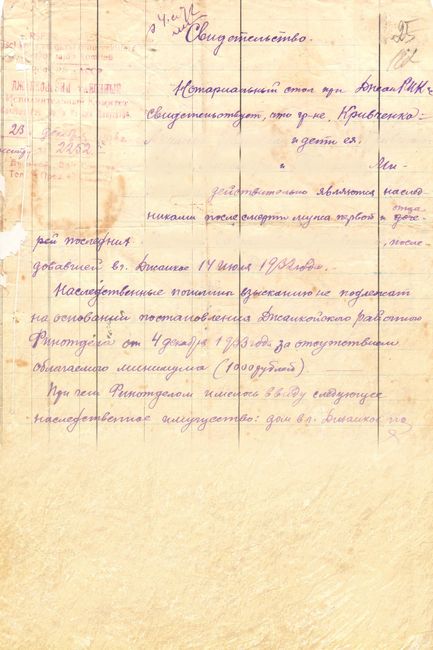 25
Свидетельство.
Нотариальный стол при Джан РИК-е
свидетельствует, что гр-не. Кривченко
и дети ея.
и Ми-
действительно являются наслед
отца
никами после смерти мужа первой и доче-
рей последния , после-
довавшей в г. Джанкое 14 июля 1932 года.
Наследственные пошлины взысканию не подлежат
на основании постановления Джанкойского районного
Финотдела от 4 декабря 1933 года за отсутствием
облагаемого минимума (1000 рублей)
При чем Финотделом имелось в виду следующее
наследственное имущество: дом в г. Джанкое по
23
2252